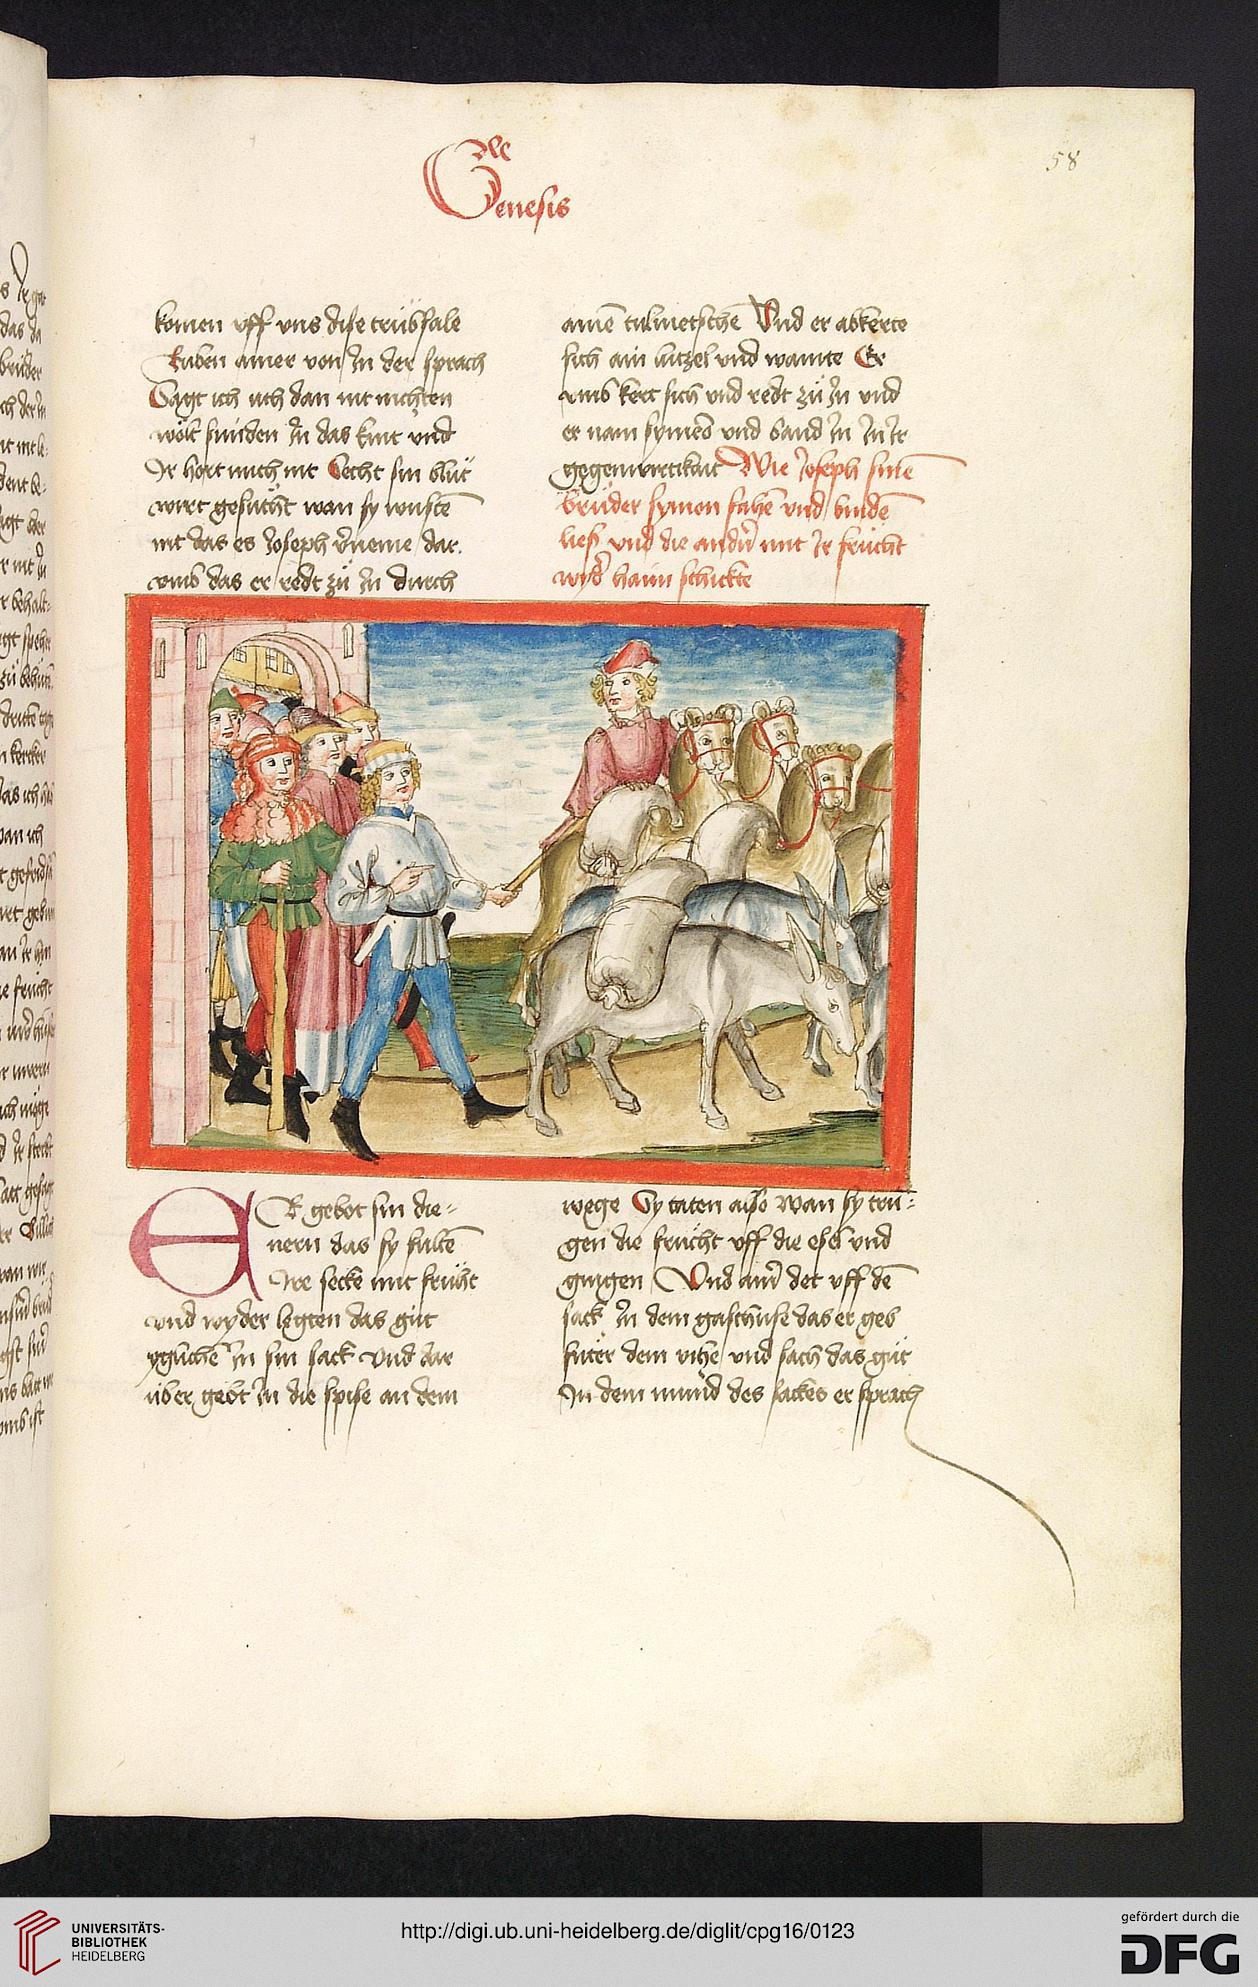 Genesis
58
komen vff vns dise trübsale
Ruben ainer von In der sprach
Sagt ich üch dan nit nichten
wölt sünden In das kint vnd
Ir hort mich nit Secht sin blüt
wirt gesücht wan sy wusten
nit das es Joseph v̄neme dar
vmb das er redt zü In durch
ainē tulmetschē Vnd er abkerte
sich ain lützel vnd wainte Er
vmb kert sich vnd redt zü In vnd
er nam symeō vnd band In In Ir
gegenwirtikait Wie Joseph sinē
brüder symon fahē vnd bindē
lies vnd die andn̄ mit Ir frücht
wyd haim schickte
ER gebot sin die=
nern das sy fultē
Ire secke mit frücht
vnd wyder legten das güt
yglichē In sin sack vnd dar
über gebt In die spise an dem
wege Sy taten also wan sy trü=
gen die frücht vff die esel vnd
gingen Vnd ainr det vff dē
sack In dem gasthuse das er geb
füter dem vihe vnd sach das güt
In dem mund des sackes er sprach
UNIVERSITÄTS-
BIBLIOTHEK
HEIDELBERG
http://digi.ub.uni-heidelberg.de/diglit/cpg16/0123
gefördert durch die
DFG